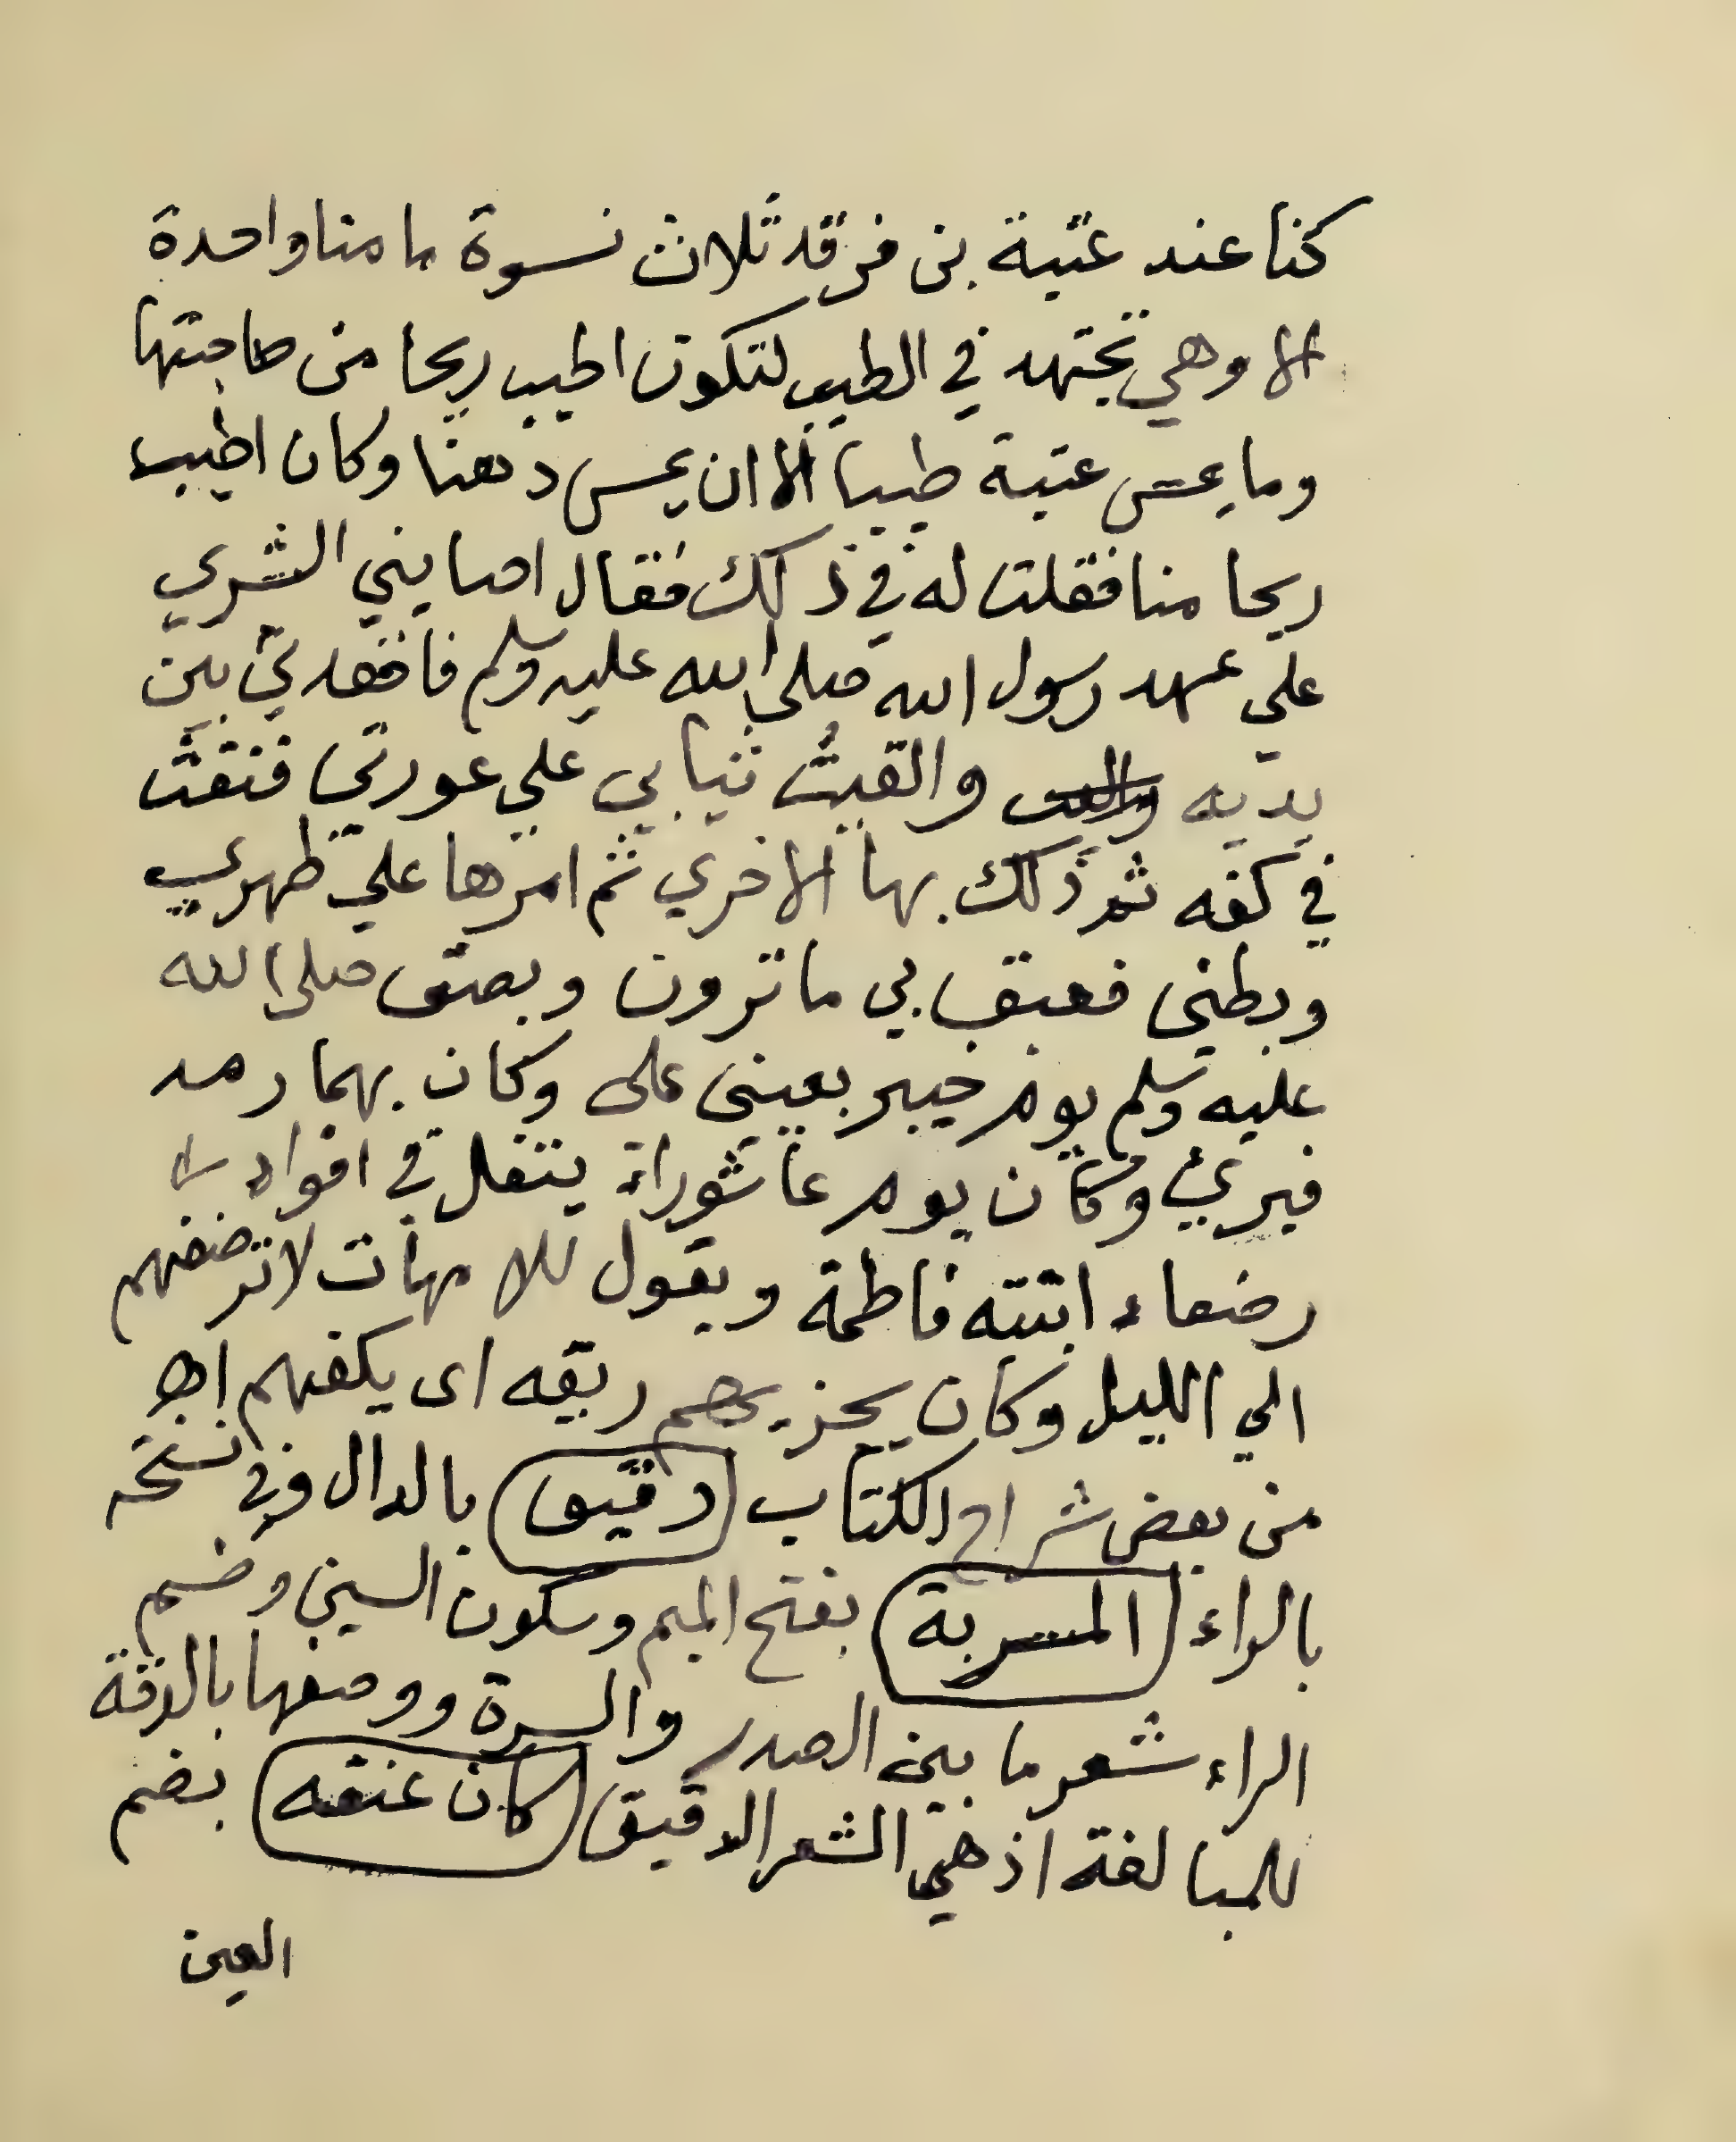 كنا عند عتبة بن فرقد ثلاث نسوة ما منا واحدة
الا وهي تجتهد في الطيب لتكون اطيب ريحا من صاحبتها
وما يمس عتبة طيبا الا ان يمس دهنا وكان اطيب
ريحا منا فقلت له في ذلك فقال اصابني الشري
علي عهد رسول الله صلى الله عليه وسلم فاقعدني بين
يديه والقيت ثيابي علي عورتي فنفث
في كفه ثم ذلك بها الاخري ثم امرها علي ظهري
وبطني فعبق بي ما ترون وبصق صلى الله
عليه وسلم يوم خيبر بعيني على وكان بهما رمد
فبرئ وكان يوم عاشوراء يتفل في افواه
رضعاء ابنته فاطمة ويقول للامهات لا ترضعنهم
الي الليل وكان يجزيهم ريقه اى يكفيهم اهـ
من بعض شراح الكتاب دقيق بالدال وفي نسخه
بالراء المسربة بفتح الميم وسكون السين وضم
الراء شعر ما بين الصدر والسرة ووصفها بالدقة
للمبالغة اذ هي الشعر الدقيق كان عنقه بضم
العين